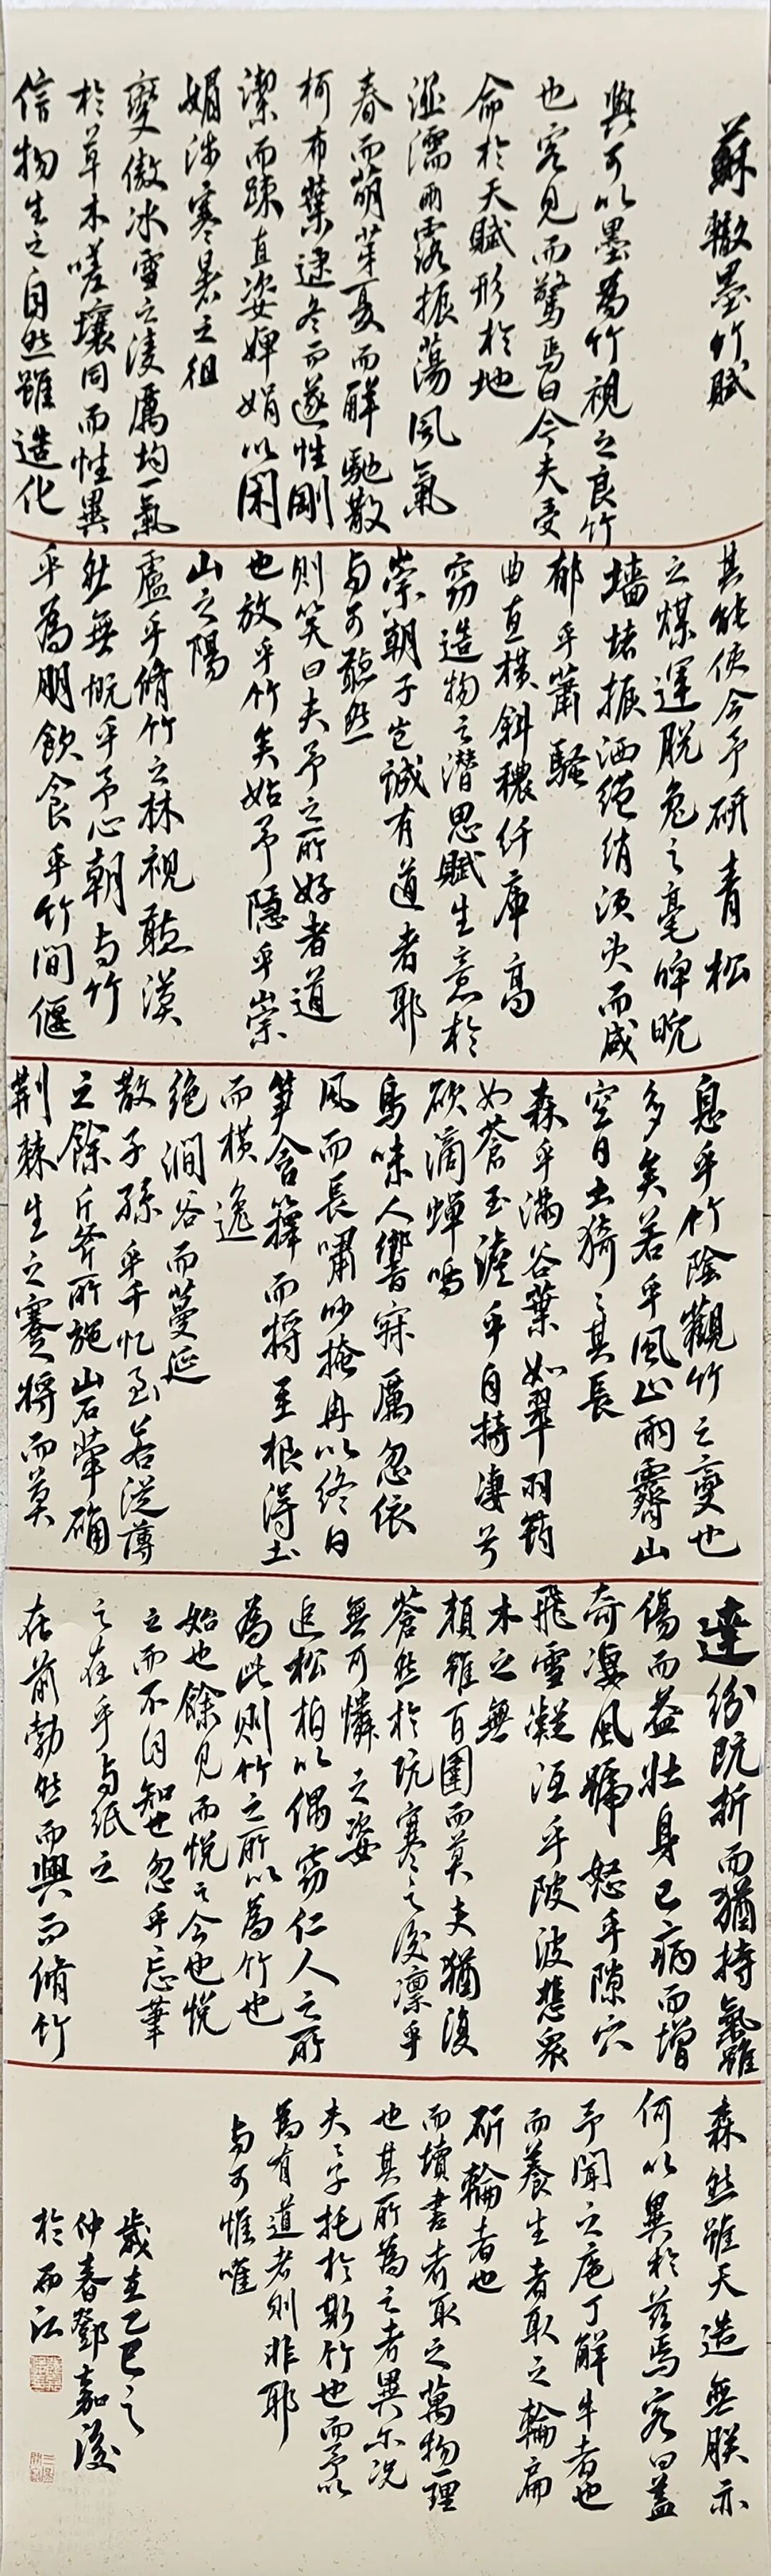 蘇轍墨竹賦
與可以墨為竹視之良竹
也客見而驚焉曰今夫受
命於天賦形於地
涵濡雨露振蕩風氣
春而萌芽夏而解馳散
柯布葉逮冬而遂性剛
潔而疎直姿嬋娟以閑
媚涉寒暑之徂
變傲冰雪之淩厲均一氣
於草木嗟壤同而性異
信物生之自然雖造化
其能使今予研青松
之煤運脫兔之毫睥睨
墻堵振洒繒綃須臾而成
郁乎蕭騷
曲直橫斜穠纤庳高
竊造物之潛思賦生意於
崇朝子豈誠有道者耶
與可聽然
則笑曰夫予之所好者道
也放乎竹矣始予隱乎崇
山之陽
廬乎脩竹之林視聽漠
然無概乎予心朝與竹
乎為朋飲食乎竹間偃
息乎竹陰觀竹之變也
多矣若乎風止雨霽山
空日出猗猗其長
森乎滿谷葉如翠羽筠
如蒼玉澹乎自持淒兮
欲滴蟬鳴
鳥噪人響寂厲忽依
風而長嘯眇掩冉以終日
笋含籜而將至根得土
而橫逸
絶澗谷而蔓延
散子孫乎千忆至若從薄
之餘斤斧所施山石犖确
荆棘生之蹇將而莫
達紛既折而猶持氣雖
傷而益壯身已病而增
奇淒風號怒乎隙穴
飛雪凝沍乎陂波悲衆
木之無
頼雖百圍而莫支猶復
蒼然於既寒之後凛乎
無可憐之姿
追松柏以偶竊仁人之所
為此則竹之所以為竹也
始也餘見而悦之今也悦
之而不自知也忽乎忘筆
之在乎與紙之
在前勃然而興而脩竹
森然雖天造無朕亦
何以異於茲焉客曰蓋
予聞之庖丁解牛者也
而養生者取之輪扁
斫輪者也
而讀書者取之萬物一理
也其所為之者異尔况
夫夫子托於斯竹也而予以
為有道者則非耶
與可惟唯
歲在乙巳之
仲春鄧嘉後
於西江